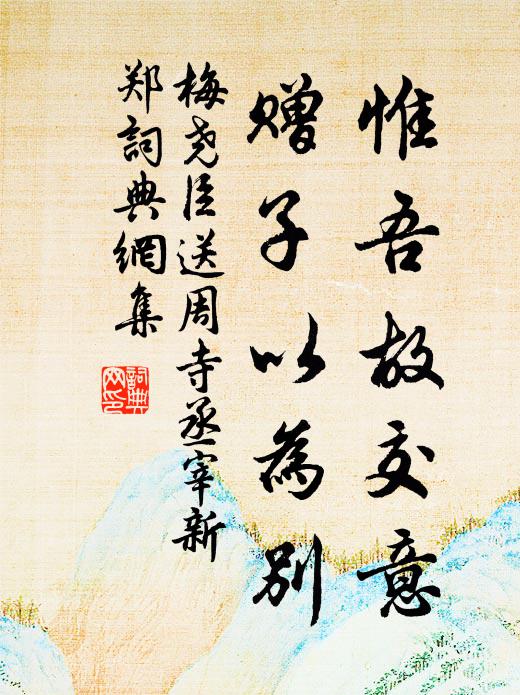 惟吾故交意
赠子以為别
梅尧臣送周寺丞宰新
郑詞典網集
詞典网印